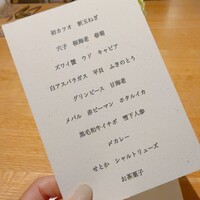 初カツオ 新玉ねぎ
穴子 桜海老 春菊
ズワイ蟹 ウド キャビア
白アスパラガス 平貝 ふきのとう
グリンピース 甘海老
メバル 赤ピーマン ホタルイカ
黒毛和牛イチボ 雪下人参
〆カレー
せとか シャルトリューズ
お茶菓子